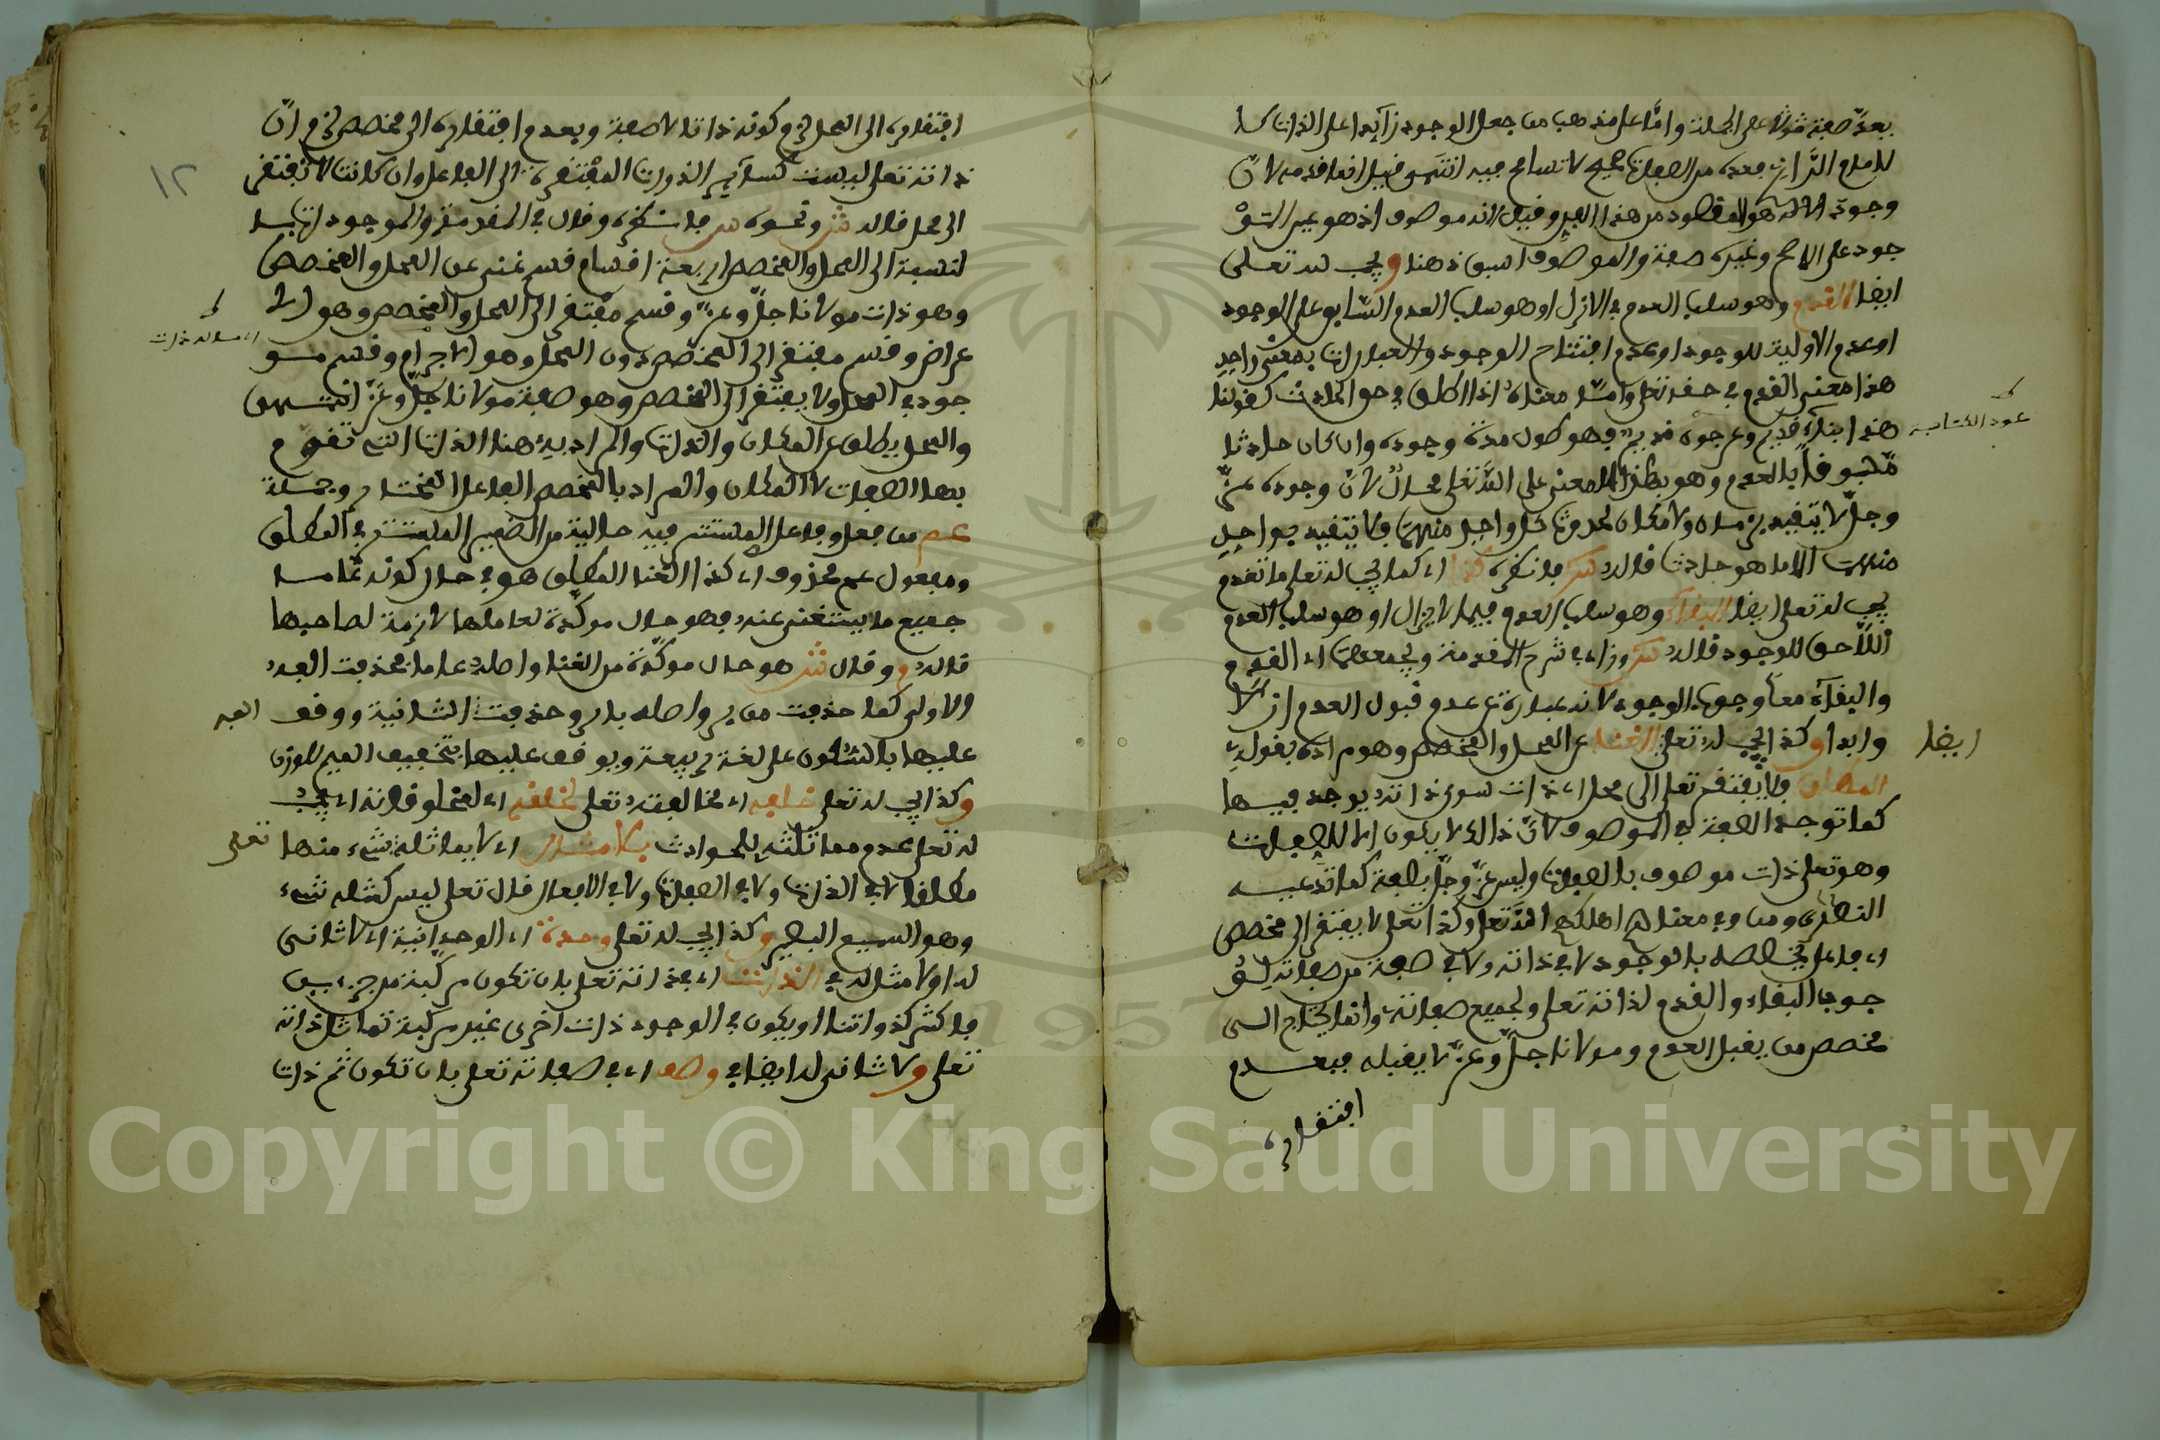 يعدّ صفة مؤثرة على الجملة وامّا على مذهب من جعل الوجود زآئدا على الذات كا
لامام الرّازي فعده من الصفات صحيح لا تسامح فيه انتهى قيل انما قدمه لانّ
هو المقصود من هذا الفن وقيل لانه موصوف اذ هو عين المو
جود على الاصح وغيره صفة والموصوف اسبق ذهنا ويجب له تعالى
ايضا القدم وهو سلب العدم في الازل او هو سلب العدم السّابق على الوجود
او عدم الاولية للوجود او عدم افتتاح الوجود والعبارات بمعنى واحد
هذا معنى القدم في حقه تعالى وامّا معناه اذا اطلق في حق الحادث كقولنا
هذا بنآء قديم وعرجون قديم فهو طول مدة وجوده وان كان حادثا
مسبوقاً بالعدم وهو بهذا المعنى على الله تعالى محال لانّ وجوده عزّ
وجلّ لا يتقيد بزمان ولا مكان لحدوث كل واحد منهما فلا يتقيد بواحد
منهما الا ما هو حادث قاله فانظره كذا اي كما يجب له تعالى ما تقدم
يجب له تعالى ايضا البقآء وهو سلب العدم فيما لا يزال او هو سلب العدم
اللّاحق للوجود قاله وزاد في شرح المقدمة ويجمعهما اي القدم
والبقآء معا وجوب الوجود لانه عبارة عن عدم قبول العدم ازلا
وابدا وكذا يجب له تعالى الغنا عن المحل والمخصص وهو مراده بقوله
المطلق فلا يفتقر تعالى الى محل اي ذات سوى ذاته يوجد فيها
كما توجد الصفة في الموصوف لانّ ذالك لا يكون الا للصفات
وهو تعالى ذات موصوف بالصفات وليس عزّ وجلّ بصفة كما تدعيه
النصرى ومن في معناهم اهلكهم الله تعالى وكذا تعالى لا يفتقر الى مخصص
اي فاعل يخصصه بالوجود لا في ذاته ولا في صفة من صفاته لو
جوب البقاء والقدم لذاته تعالى ولجميع صفاته وانما يحتاج الى
مخصص من يقبل العدم ومولانا جلّ وعزّ لا يقبله فبعدم
افتقاره
عود الكتابة
ايضا
١٢
افتقاره الى المحل لزم كونه ذاتا لا صفة وبعدم افتقاره الى مخصص لزم انّ
ذاته تعالى ليست كسآئر الذوات المفتقرة الى الفاعل وان كانت لا تفتقر
الى محل قاله ونحوه فانظره وقال في المقدمة والموجودات با
لنسبة الى المحل والمخصص اربعة اقسام قسم غني عن المحل والمخصص
وهو ذات مولانا جلّ وعزّ وقسم مفتقر الى المحل والمخصص وهو الا
عراض وقسم مفتقر الى المخصص دون المحل وهو الاجرام وقسم مو
جود في المحل ولا يفتقر الى المخصص وهو صفة مولانا جلّ وعزّ انتهى
والمحل يطلق على المكان والذات والمراد به هنا الذات التي تقوم
بها الصفات لا المكان والمراد بالمخصص الفاعل المختار وجملة
عم من فعل وفاعل المستتر فيه حالية من الضمير المستتر في المطلق
ومفعول عم محذوف اي كذا الغنا المطلق هو في حال كونه عّاما
جميع ما يستغنى عنه فهو حال موكّدة لعاملها لازمة لصاحبها
قاله وقال هو حال موكّدة من الغنا واصله عاما فحذفت الالف
الاولى كما حذفت من بر واصله بار وحذفت الثانية ووقف
عليها بالسكون على لغة ربيعة ويوقف عليها بتخفيف الميم للوزن
وكذا يجب له تعالى خلفه اي مخالفته تعالى لخلقه اي لمخلوقاته اي يجب
له تعالى عدم مماثلته للحوادث بلا مثال اي لا يماثله شيء منها
مطلقا لا في الذات ولا في الصفات ولا في الافعال قال تعالى ليس كمثله شيء
وهو السميع البصير وكذا يجب له تعالى وحدة اي الوحدانية اي لا ثاني
له اي لا مثل له في الذات اي في ذاته تعالى بان تكون مركبة من جزءين
فاكثر كذواتنا او يكون في الوجود ذات اخرى غير مركبة تماثل ذاته
تعالى ولا ثاني له ايضا في وصف اي في صفاته تعالى بان تكون ثم ذات
تعالى